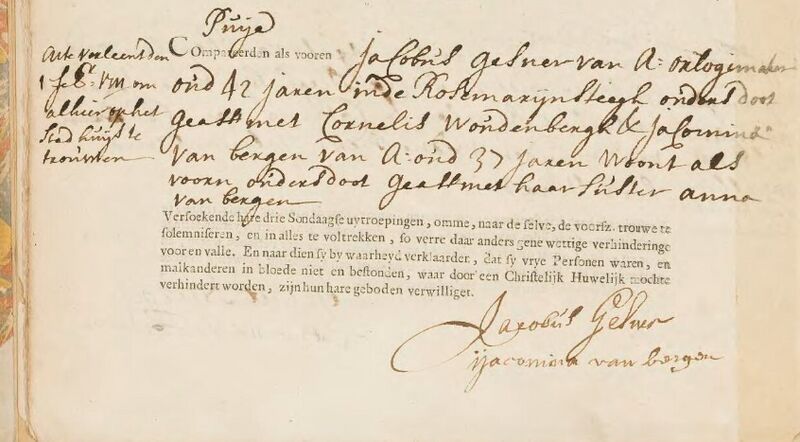 Puije
Acte verleent den
1 feb.r VM om
alhier op het
Stad huijs te
trouwen
Compareerden als vooren Jacobus Gesner van A: orlogimaker
oud 42 jaren inde Rosemarijnsteegh ouders doot
geass met Cornelis Woudenbergh & Jacomina
van bergen van A: oud 37 jaren woont als
voorn ouders doot geass met haar suster anna
van bergen
Versoekende hare drie Sondaagse uytroepingen, omme, naar de selve, de voorsz. trouwe te
solemniseren, en in alles te voltrekken, so verre daar anders gene wettige verhinderinge
vooren valle. En naar dien sy by waarheyd verklaarden, dat sy vrye Personen waren, en
malkanderen in bloede niet en bestonden, waar door een Christelijk Huwelijk mochte
verhindert worden, zijn hun hare geboden verwilliget.
Jacobus Gesner
ijacomina van bergen